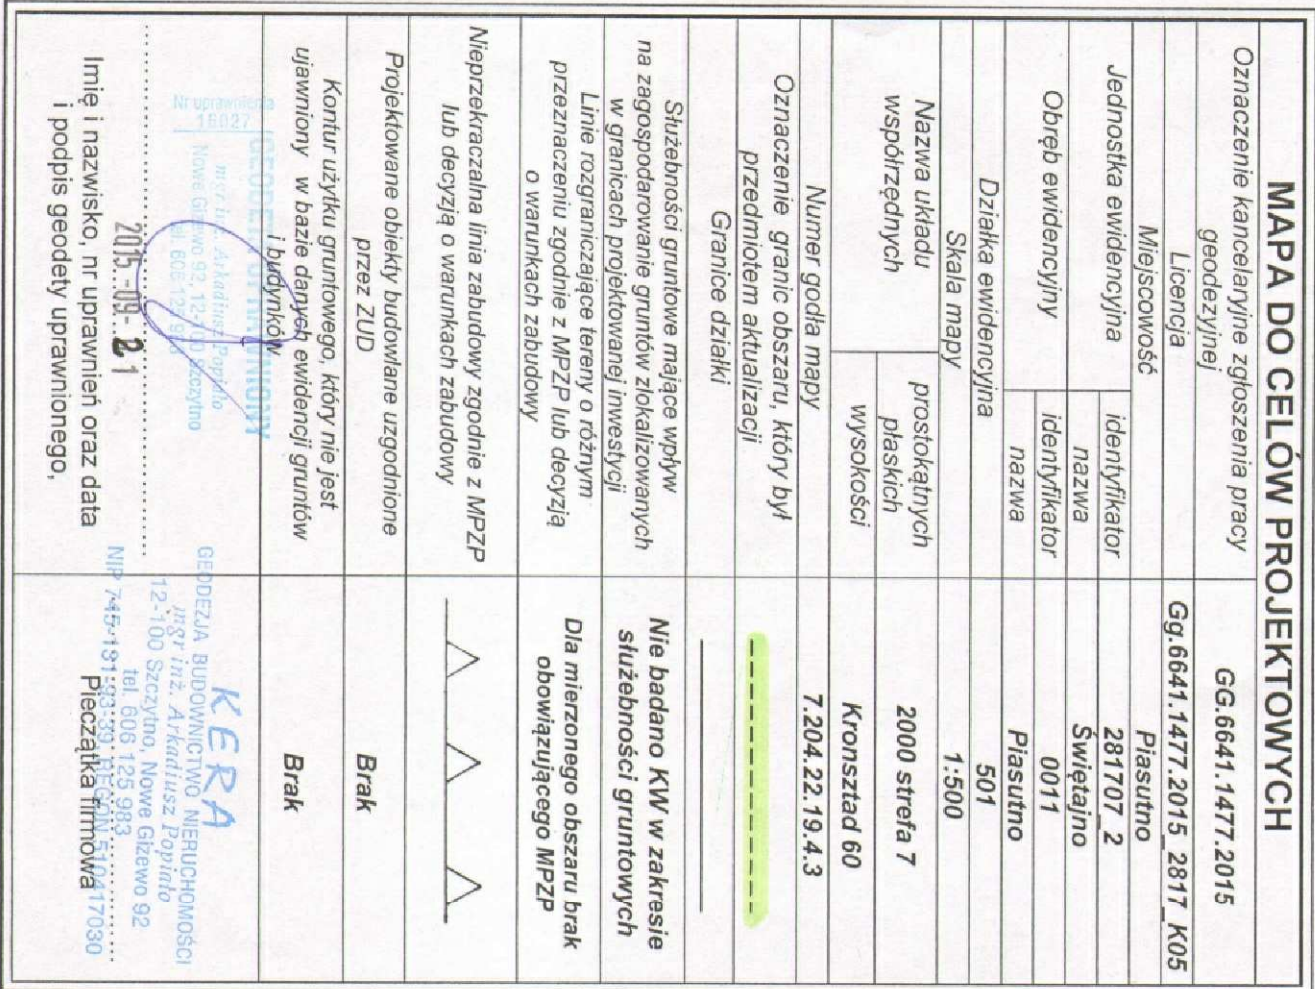 MAPA DO CELÓW PROJEKTOWYCH
Oznaczenie kancelaryjne zgłoszenia pracy
geodezyjnej
GG.6641.1477.2015
Licencja
Gg.6641.1477.2015_2817_K05
Miejscowość
Piasutno
Jednostka ewidencyjna
identyfikator
281707_2
nazwa
Świętajno
Obręb ewidencyjny
identyfikator
0011
nazwa
Piasutno
Działka ewidencyjna
501
Skala mapy
1:500
Nazwa układu
współrzędnych
prostokątnych
płaskich
2000 strefa 7
wysokości
Kronsztad 60
Numer godła mapy
7.204.22.19.4.3
Oznaczenie granic obszaru, który był
przedmiotem aktualizacji
Granice działki
Służebności gruntowe mające wpływ
na zagospodarowanie gruntów zlokalizowanych
w granicach projektowanej inwestycji
Nie badano KW w zakresie
służebności gruntowych
Linie rozgraniczające tereny o różnym
przeznaczeniu zgodnie z MPZP lub decyzją
o warunkach zabudowy
Dla mierzonego obszaru brak
obowiązującego MPZP
Nieprzekraczalna linia zabudowy zgodnie z MPZP
lub decyzją o warunkach zabudowy
Projektowane obiekty budowlane uzgodnione
przez ZUD
Brak
Kontur użytku gruntowego, który nie jest
ujawniony w bazie danych ewidencji gruntów
i budynków
Brak
GEODETA UPRAWNIONY
Nr uprawnienia
18027
mgr inż. Arkadiusz Popiało
Nowe Gizewo 92, 12-100 Szczytno
2015 -09- 21
Imię i nazwisko, nr uprawnień oraz data
i podpis geodety uprawnionego,
KERA
GEODEZJA BUDOWNICTWO NIERUCHOMOŚCI
mgr inż. Arkadiusz Popiało
12-100 Szczytno, Nowe Gizewo 92
tel. 606 125 983
NIP 745-191-93-39 REGON 510417030
Pieczątka firmowa